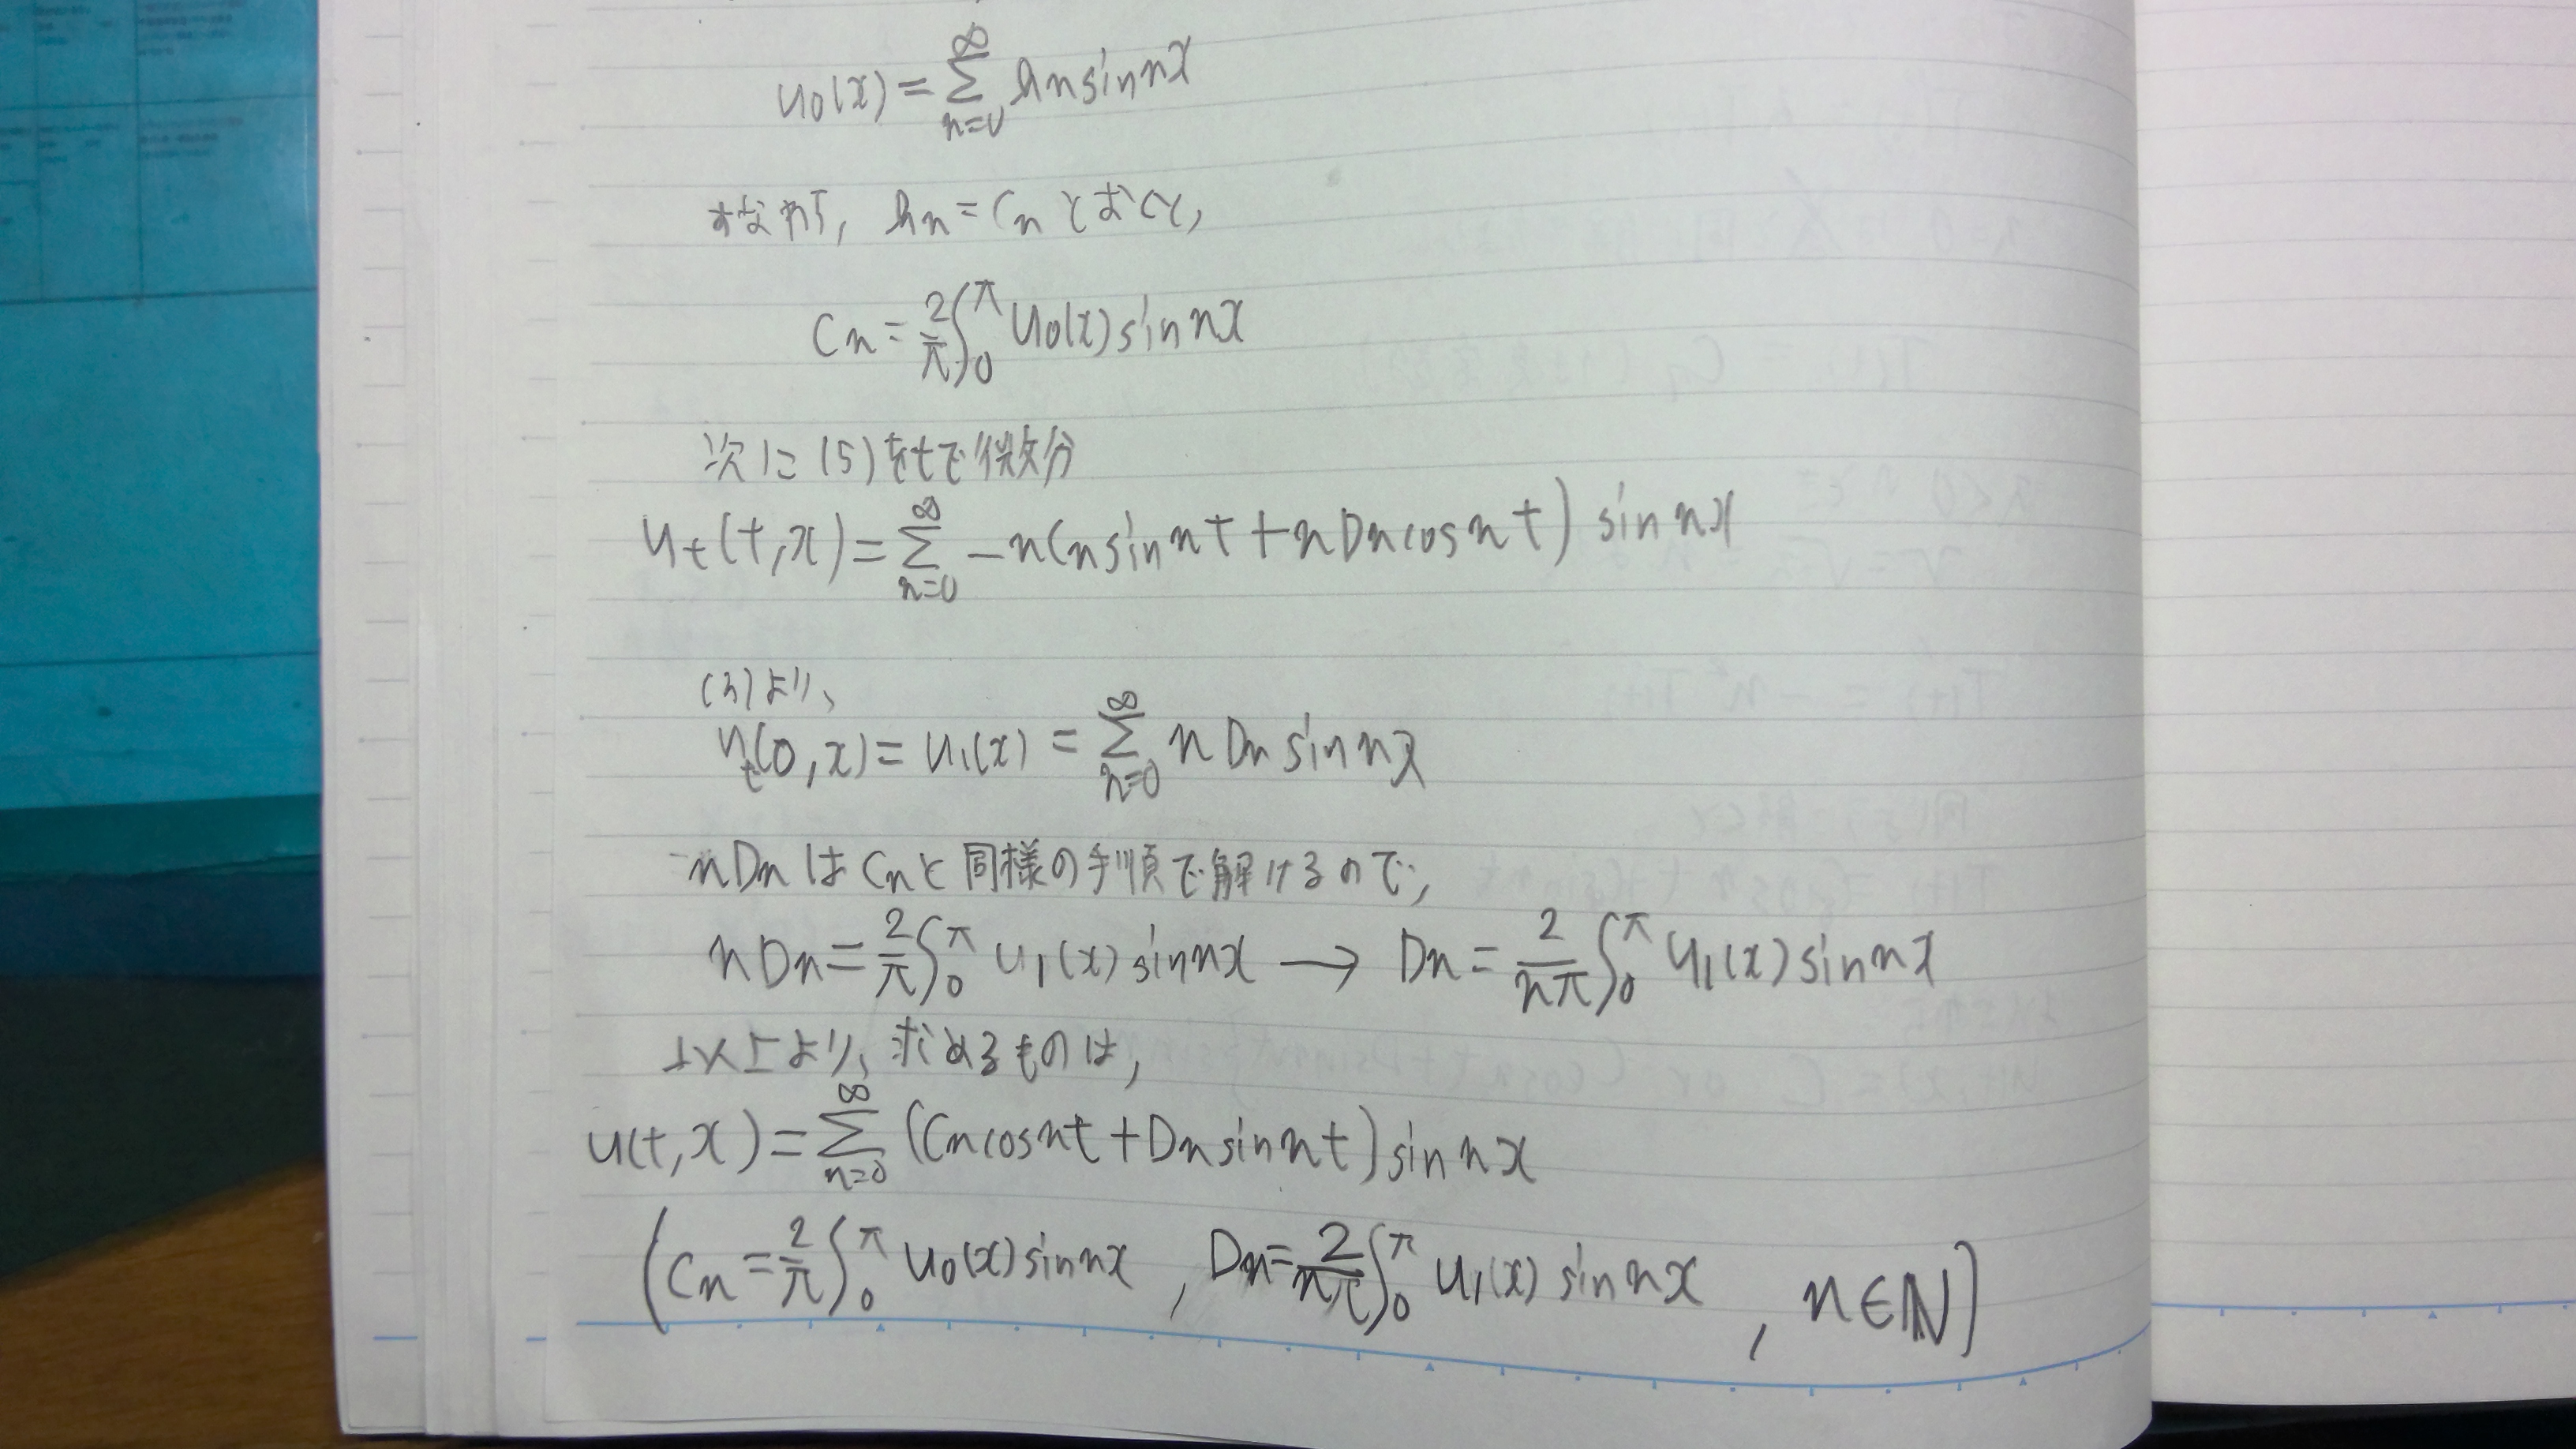 u₀(x) = ∑_{n=0}^{∞} hn sin nx
すなわち, hn = Cn とおくと,
Cn = 2/π ∫₀^π u₀(x) sin nx
次に (5) をtで微分
u_t(t,x) = ∑_{n=0}^{∞} -nCn sin nt + nDn cos nt) sin nx
(3)より、
u_t(0,x) = u₁(x) = ∑_{n=0}^{∞} n Dn sin nx
nDn は Cnと 同様の手順で解けるので,
nDn = 2/π ∫₀^π u₁(x) sin nx → Dn = 2/nπ ∫₀^π u₁(x) sin nx
以上より、求めるものは,
u(t,x) = ∑_{n=0}^{∞} (Cn cos nt + Dn sin nt) sin nx
(Cn = 2/π ∫₀^π u₀(x) sin nx , Dn = 2/nπ ∫₀^π u₁(x) sin nx , n∈ℕ)